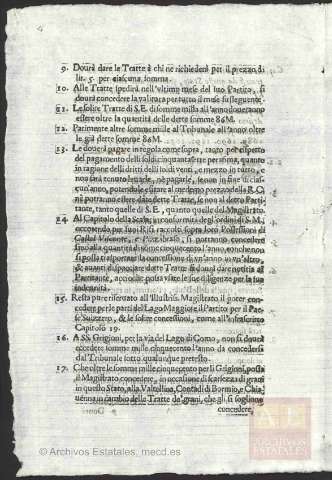 9. Dourà dare le Tratte à chi ne richiederà per il prezzo di
lir. 5. per ciascuna somma.
10. Alle Tratte spedirà nell'vltimo mese del suo Partito, si
dourà concedere la valitura per tutto il mese susseguente.
11. Le solite Tratte di S.E. di somme milla all'anno doueranno
essere oltre la quantità delle dette somme 86M.
12. Parimente altre somme mille al Tribunale all'anno oltre
le già dette somme 86M.
13. Le douerà pagare in regola come sopra, tanto per rispetto
del pagamento delli soldi cinquantatre per soma, quanto
in ragione delli dritti delli soldi venti, e mezzo in tutto, e
non sarà tenuto leuarle, nè pagarle, se non in fine di cias-
cun'anno, potendole esitare al medemo prezzo della R.C.
nè potranno essere date dette Tratte, se non al detto Parti-
tante, tanto quelle di S.E. quanto quelle del Magistrato.
14. Al Capitolo della Scala, in conformità degl'ordini di S.M.
occorendo per suoi Risi raccolti sopra loro Possessioni di
Castel Visconte, si potranno concedere
sino alla quantità di some cinquecento l'anno, come non
si possa trasportare la concessione di vn'anno in vn'altro,
& auanti si spediscano dette Tratte si dourà dare notitia al
Partitante, acciò possa vsare le sue diligenze per la sua
indennità.
15. Resta pure riseruato all'Illustriss. Magistrato il poter con-
cedere per le parti del Lago Maggiore il Partito per il Pae-
se Suizzero, & le solite concessioni, come all'infrascritto
Capitolo 19.
16. A SS. Grigioni, per la via del Lago di Como, non si dourà
eccedere somme mille cinquecento l'anno da concedersi
dal Tribunale sotto qualunque pretesto.
17. Che oltre le somme mille cinquecento per li Grigioni, possa
il Magistrato concedere, in occasione di scarsezza di grani
in questo Stato, alla Valtellina, Contadi di Bormio, e Chia-
uenna in cambio delle Tratte de'grani, che gli si sogliono
concedere,
© Archivos Estatales, mecd.es
ARCHIVOS
ESTATALES